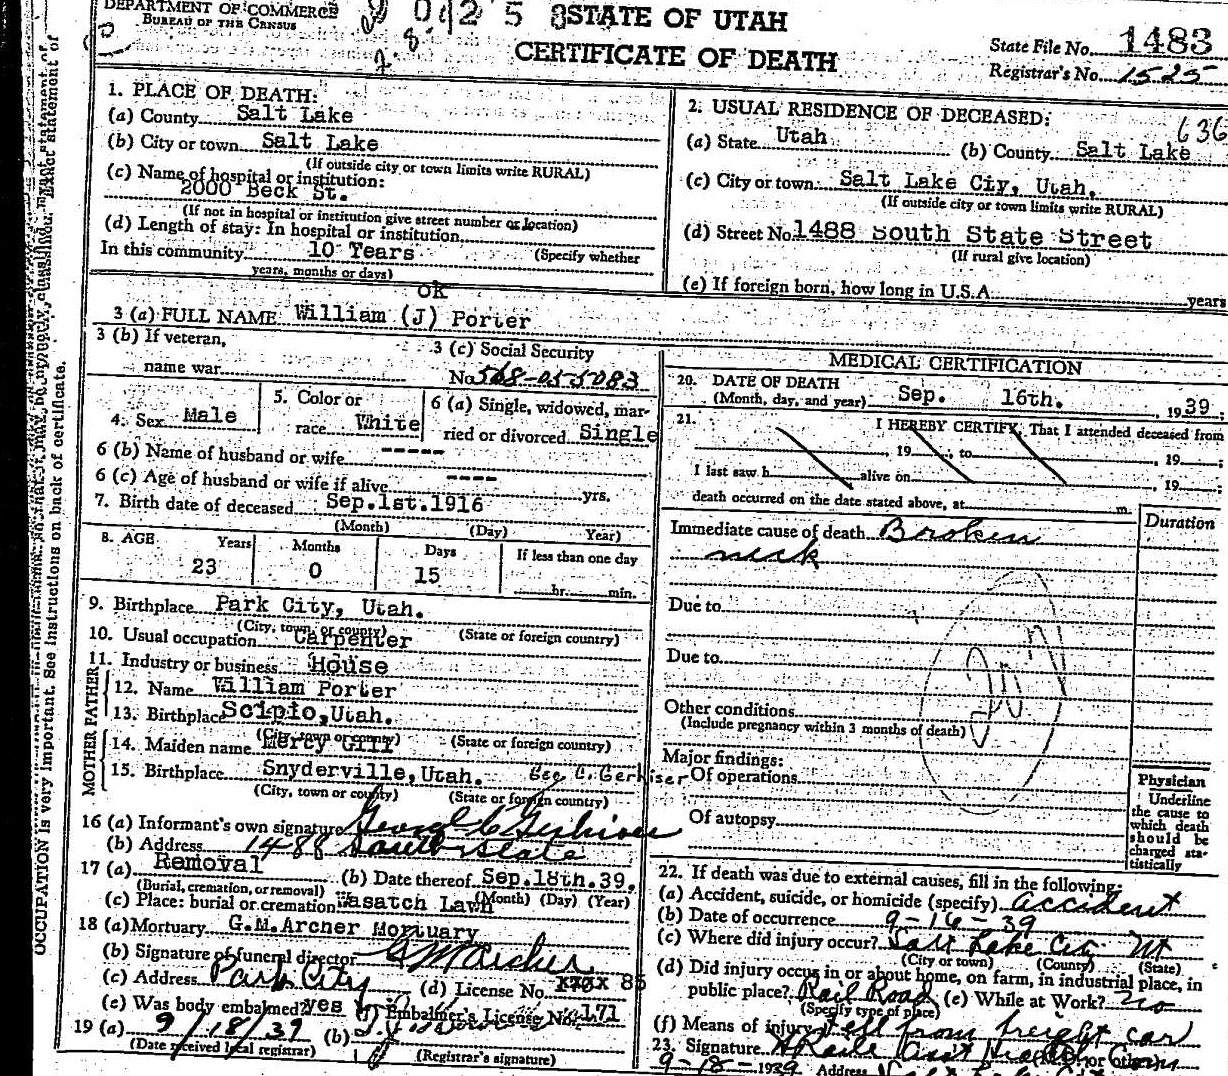 DEPARTMENT OF COMMERCE
BUREAU OF THE CENSUS
STATE OF UTAH
CERTIFICATE OF DEATH
State File No. 1483
Registrar's No. 1525
1. PLACE OF DEATH:
(a) County Salt Lake
(b) City or town Salt Lake
(If outside city or town limits write RURAL)
(c) Name of hospital or institution:
2000 Beck St.
(If not in hospital or institution give street number or location)
(d) Length of stay: In hospital or institution
In this community 10 Years (Specify whether
years, months or days)
2. USUAL RESIDENCE OF DECEASED:
636
(a) State Utah (b) County Salt Lake
(c) City or town Salt Lake Ciy, Utah.
(If outside city or town limits write RURAL)
(d) Street No. 1488 South State Street
(If rural give location)
(e) If foreign born, how long in U.S.A. years
OK
3 (a) FULL NAME William (J) Porter
3 (b) If veteran,
name war
3 (c) Social Security
No. 568-05-5083
4. Sex Male
5. Color or
race White
6 (a) Single, widowed, mar-
ried or divorced Single
6 (b) Name of husband or wife -----
6 (c) Age of husband or wife if alive ---- yrs.
7. Birth date of deceased Sep.1st.1916
(Month) (Day) Year)
8. AGE Years Months Days If less than one day
23 0 15 hr. min.
9. Birthplace Park City, Utah.
(City, town or county) (State or foreign country)
10. Usual occupation Carpenter
11. Industry or business House
FATHER
12. Name William Porter
13. Birthplace Scipio, Utah.
(City, town or county) (State or foreign country)
MOTHER
14. Maiden name Mercy Gill
15. Birthplace Snyderville, Utah.
(City, town or county) (State or foreign country)
Geo C. Gerhiser
16 (a) Informant's own signature George C Gerhiser
(b) Address 1488 South State
17 (a) Removal (b) Date thereof Sep.18th.39.
(Burial, cremation, or removal) (Month) (Day) (Year)
(c) Place: burial or cremation Wasatch Lawn
18 (a) Mortuary G.M.Archer Mortuary
(b) Signature of funeral director G M Archer
(c) Address Park City (d) License No. 85
(e) Was body embalmed? yes (f) Embalmer's License No. 171
19 (a) 9/18/39 (b)
(Date received local registrar) (Registrar's signature)
MEDICAL CERTIFICATION
20. DATE OF DEATH
(Month, day, and year) Sep. 16th. , 1939
21. I HEREBY CERTIFY, That I attended deceased from
, 19 ; to , 19 ;
I last saw h alive on , 19 ;
death occurred on the date stated above, at m.
Duration
Immediate cause of death Broken
neck
Due to
Due to
Other conditions
(Include pregnancy within 3 months of death)
Major findings:
Of operations
Of autopsy
Physician
Underline
the cause to
which death
should be
charged sta-
tistically
22. If death was due to external causes, fill in the following:
(a) Accident, suicide, or homicide (specify) accident
(b) Date of occurrence 9-16-39
(c) Where did injury occur? Salt Lake City Ut
(City or town) (County) (State)
(d) Did injury occur in or about home, on farm, in industrial place, in
public place? Rail Road (e) While at Work? no
(Specify type of place)
(f) Means of injury fell from freight car
23. Signature
9-18-1939 Address
OCCUPATION is very important. See instructions on back of certificate.